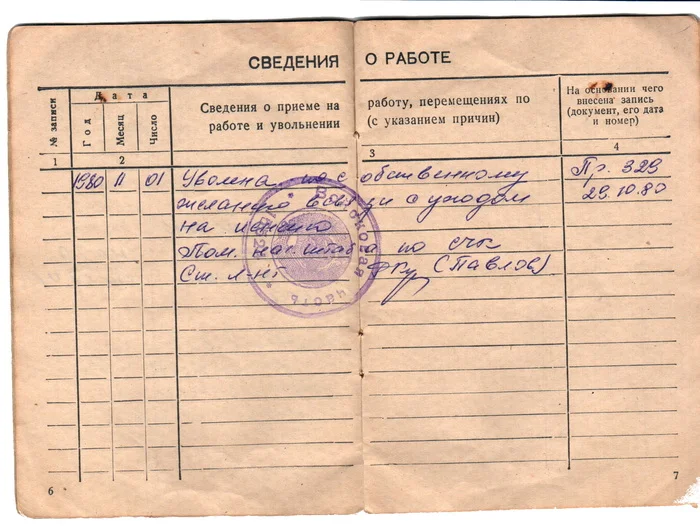 СВЕДЕНИЯ О РАБОТЕ
№ записи
Дата
Год
Месяц
Число
Сведения о приеме на работу, перемещениях по
работе и увольнении (с указанием причин)
На основании чего
внесена запись
(документ, его дата
и номер)
1 2 3 4
1980 11 01 Уволена по собственному Пр. 329
желанию в связи с уходом 29.10.80
на пенсию
Пом. нач. штаба по
Ст. л-нт (Павлов)
Войсковая часть
6 7